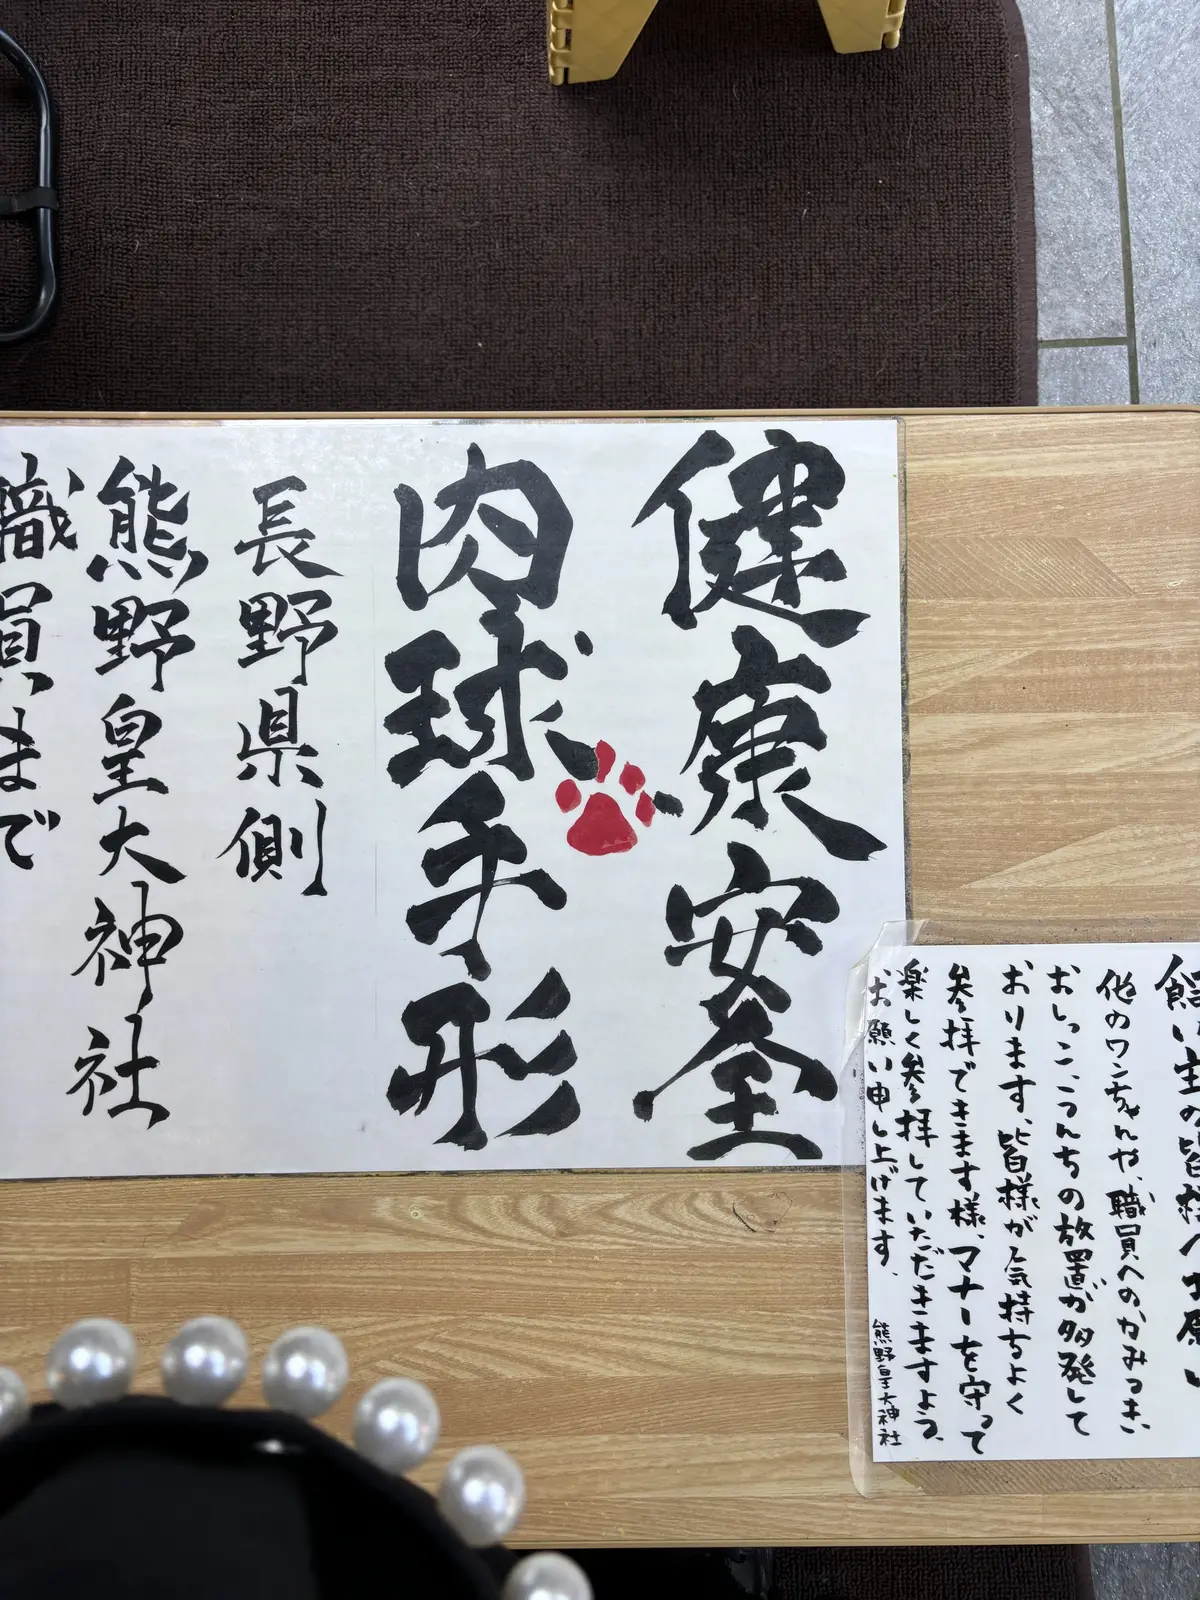 健康安全
肉球手形
長野県側
熊野皇大神社
職員まで
飼い主の皆様へお願い
他のワンちゃんや、職員へのかみつき、
おしっこ、うんちの放置が多発して
おります。皆様が気持ちよく
参拝できます様、マナーを守って
楽しく参拝していただきますよう、
お願い申し上げます。
熊野皇大神社